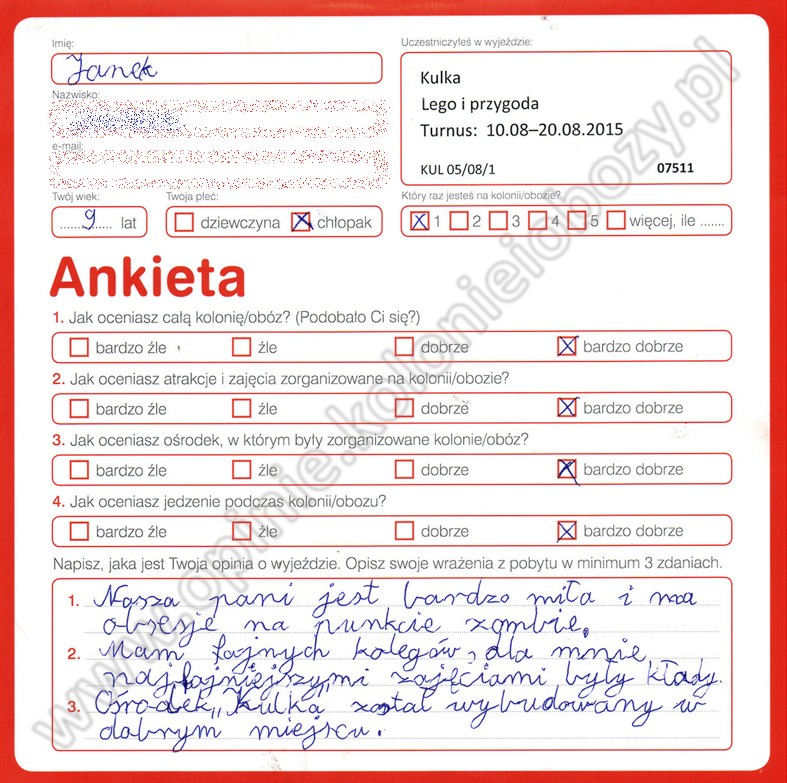 Imię:
Janek
Uczestniczyłeś w wyjeździe:
Kulka
Lego i przygoda
Turnus: 10.08–20.08.2015
KUL 05/08/1 07511
Nazwisko:
e-mail:
Twój wiek:
9 lat
Twoja płeć:
dziewczyna chłopak
Który raz jesteś na kolonii/obozie?
1 2 3 4 5 więcej, ile .......
Ankieta
1. Jak oceniasz całą kolonię/obóz? (Podobało Ci się?)
bardzo źle źle dobrze bardzo dobrze
2. Jak oceniasz atrakcje i zajęcia zorganizowane na kolonii/obozie?
bardzo źle źle dobrze bardzo dobrze
3. Jak oceniasz ośrodek, w którym były zorganizowane kolonie/obóz?
bardzo źle źle dobrze bardzo dobrze
4. Jak oceniasz jedzenie podczas kolonii/obozu?
bardzo źle źle dobrze bardzo dobrze
Napisz, jaka jest Twoja opinia o wyjeździe. Opisz swoje wrażenia z pobytu w minimum 3 zdaniach.
1. Nasza pani jest bardzo miła i ma
obsesje na punkcie zombie.
2. Mam fajnych kolegów, dla mnie
najfajniejszymi zajęciami były kłady.
3. Ośrodek „Kulka” został wybudowany w
dobrym miejscu.
www.opinie.kolonieiobozy.pl